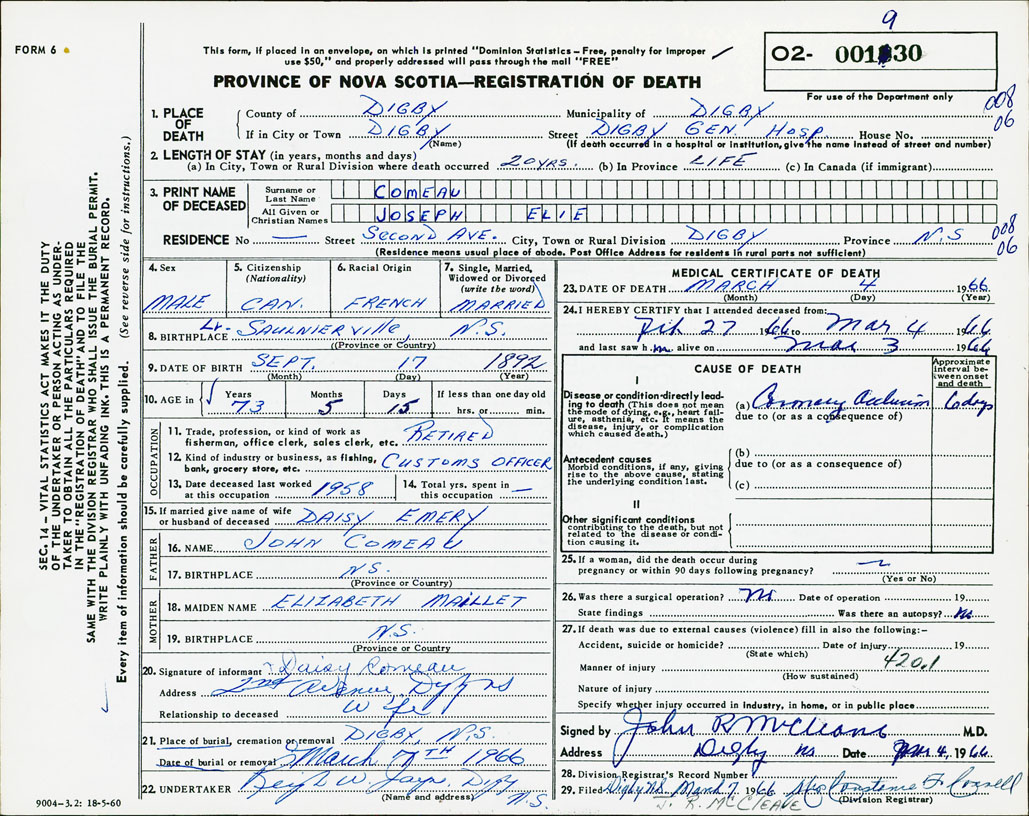 9
FORM 6
This form, if placed in an envelope, on which is printed "Dominion Statistics – Free, penalty for improper
use $50," and properly addressed will pass through the mail "FREE"
PROVINCE OF NOVA SCOTIA—REGISTRATION OF DEATH
O2- 001 30
For use of the Department only
008
06
1. PLACE OF DEATH
County of DIGBY Municipality of DIGBY
If in City or Town DIGBY Street DIGBY GEN. HOSP. House No.
(Name) (If death occurred in a hospital or institution, give the name instead of street and number)
2. LENGTH OF STAY (in years, months and days)
(a) In City, Town or Rural Division where death occurred 20 YRS. (b) In Province LIFE (c) In Canada (if immigrant)
3. PRINT NAME OF DECEASED
Surname or Last Name COMEAU
All Given or Christian Names JOSEPH ELIE
RESIDENCE No — Street SECOND AVE. City, Town or Rural Division DIGBY Province N.S
008
06
(Residence means usual place of abode. Post Office Address for residents in rural parts not sufficient)
4. Sex MALE
5. Citizenship (Nationality) CAN.
6. Racial Origin FRENCH
7. Single, Married, Widowed or Divorced (write the word) MARRIED
8. BIRTHPLACE SAULNIERVILLE, N.S.
(Province or Country)
9. DATE OF BIRTH SEPT. 17 1892
(Month) (Day) (Year)
10. AGE in Years 73 Months 5 Days 15 If less than one day old hrs. or min.
OCCUPATION
11. Trade, profession, or kind of work as fisherman, office clerk, sales clerk, etc. RETIRED
12. Kind of industry or business, as fishing, bank, grocery store, etc. CUSTOMS OFFICER
13. Date deceased last worked at this occupation 1958
14. Total yrs. spent in this occupation —
15. If married give name of wife or husband of deceased DAISY EMERY
FATHER
16. NAME JOHN COMEAU
17. BIRTHPLACE N.S.
(Province or Country)
MOTHER
18. MAIDEN NAME ELIZABETH MAILLET
19. BIRTHPLACE N.S.
(Province or Country)
20. Signature of informant Daisy Comeau
Address 2nd Avenue, Digby NS
Relationship to deceased Wife
21. Place of burial, cremation or removal DIGBY N.S.
Date of burial or removal March 7TH 1966
22. UNDERTAKER W. N.S.
(Name and address)
9004-3.2: 18-5-60
MEDICAL CERTIFICATE OF DEATH
23. DATE OF DEATH MARCH 4 1966
(Month) (Day) (Year)
24. I HEREBY CERTIFY that I attended deceased from:
Feb 27 1966 to Mar 4 1966
and last saw him alive on Mar 3 1966
CAUSE OF DEATH
Approximate interval between onset and death
I
Disease or condition directly leading to death (This does not mean the mode of dying, e.g., heart failure, asthenia, etc. It means the disease, injury, or complication which caused death.)
(a) Coronary Occlusion 6 days
due to (or as a consequence of)
Antecedent causes
Morbid conditions, if any, giving rise to the above cause, stating the underlying condition last.
(b)
due to (or as a consequence of)
(c)
II
Other significant conditions contributing to the death, but not related to the disease or condition causing it.
25. If a woman, did the death occur during
pregnancy or within 90 days following pregnancy? —
(Yes or No)
26. Was there a surgical operation? No Date of operation 19
State findings Was there an autopsy? No
27. If death was due to external causes (violence) fill in also the following:–
Accident, suicide or homicide? Date of injury 19
(State which)
420.1
Manner of injury
(How sustained)
Nature of injury
Specify whether injury occurred in industry, in home, or in public place
Signed by John R McCleave M.D.
Address Digby NS Date Mar 4, 1966
28. Division Registrar's Record Number
29. Filed Digby N.S. March 7 1966 Mrs Constance F.
(Division Registrar)
J. R. McCLEAVE
SEC. 14 – VITAL STATISTICS ACT MAKES IT THE DUTY
OF THE UNDERTAKER OR PERSON ACTING AS UNDER-
TAKER TO OBTAIN ALL THE PARTICULARS REQUIRED
IN THE "REGISTRATION OF DEATH" AND TO FILE THE
SAME WITH THE DIVISION REGISTRAR WHO SHALL ISSUE THE BURIAL PERMIT.
WRITE PLAINLY WITH UNFADING INK. THIS IS A PERMANENT RECORD.
Every item of information should be carefully supplied. (See reverse side for instructions.)